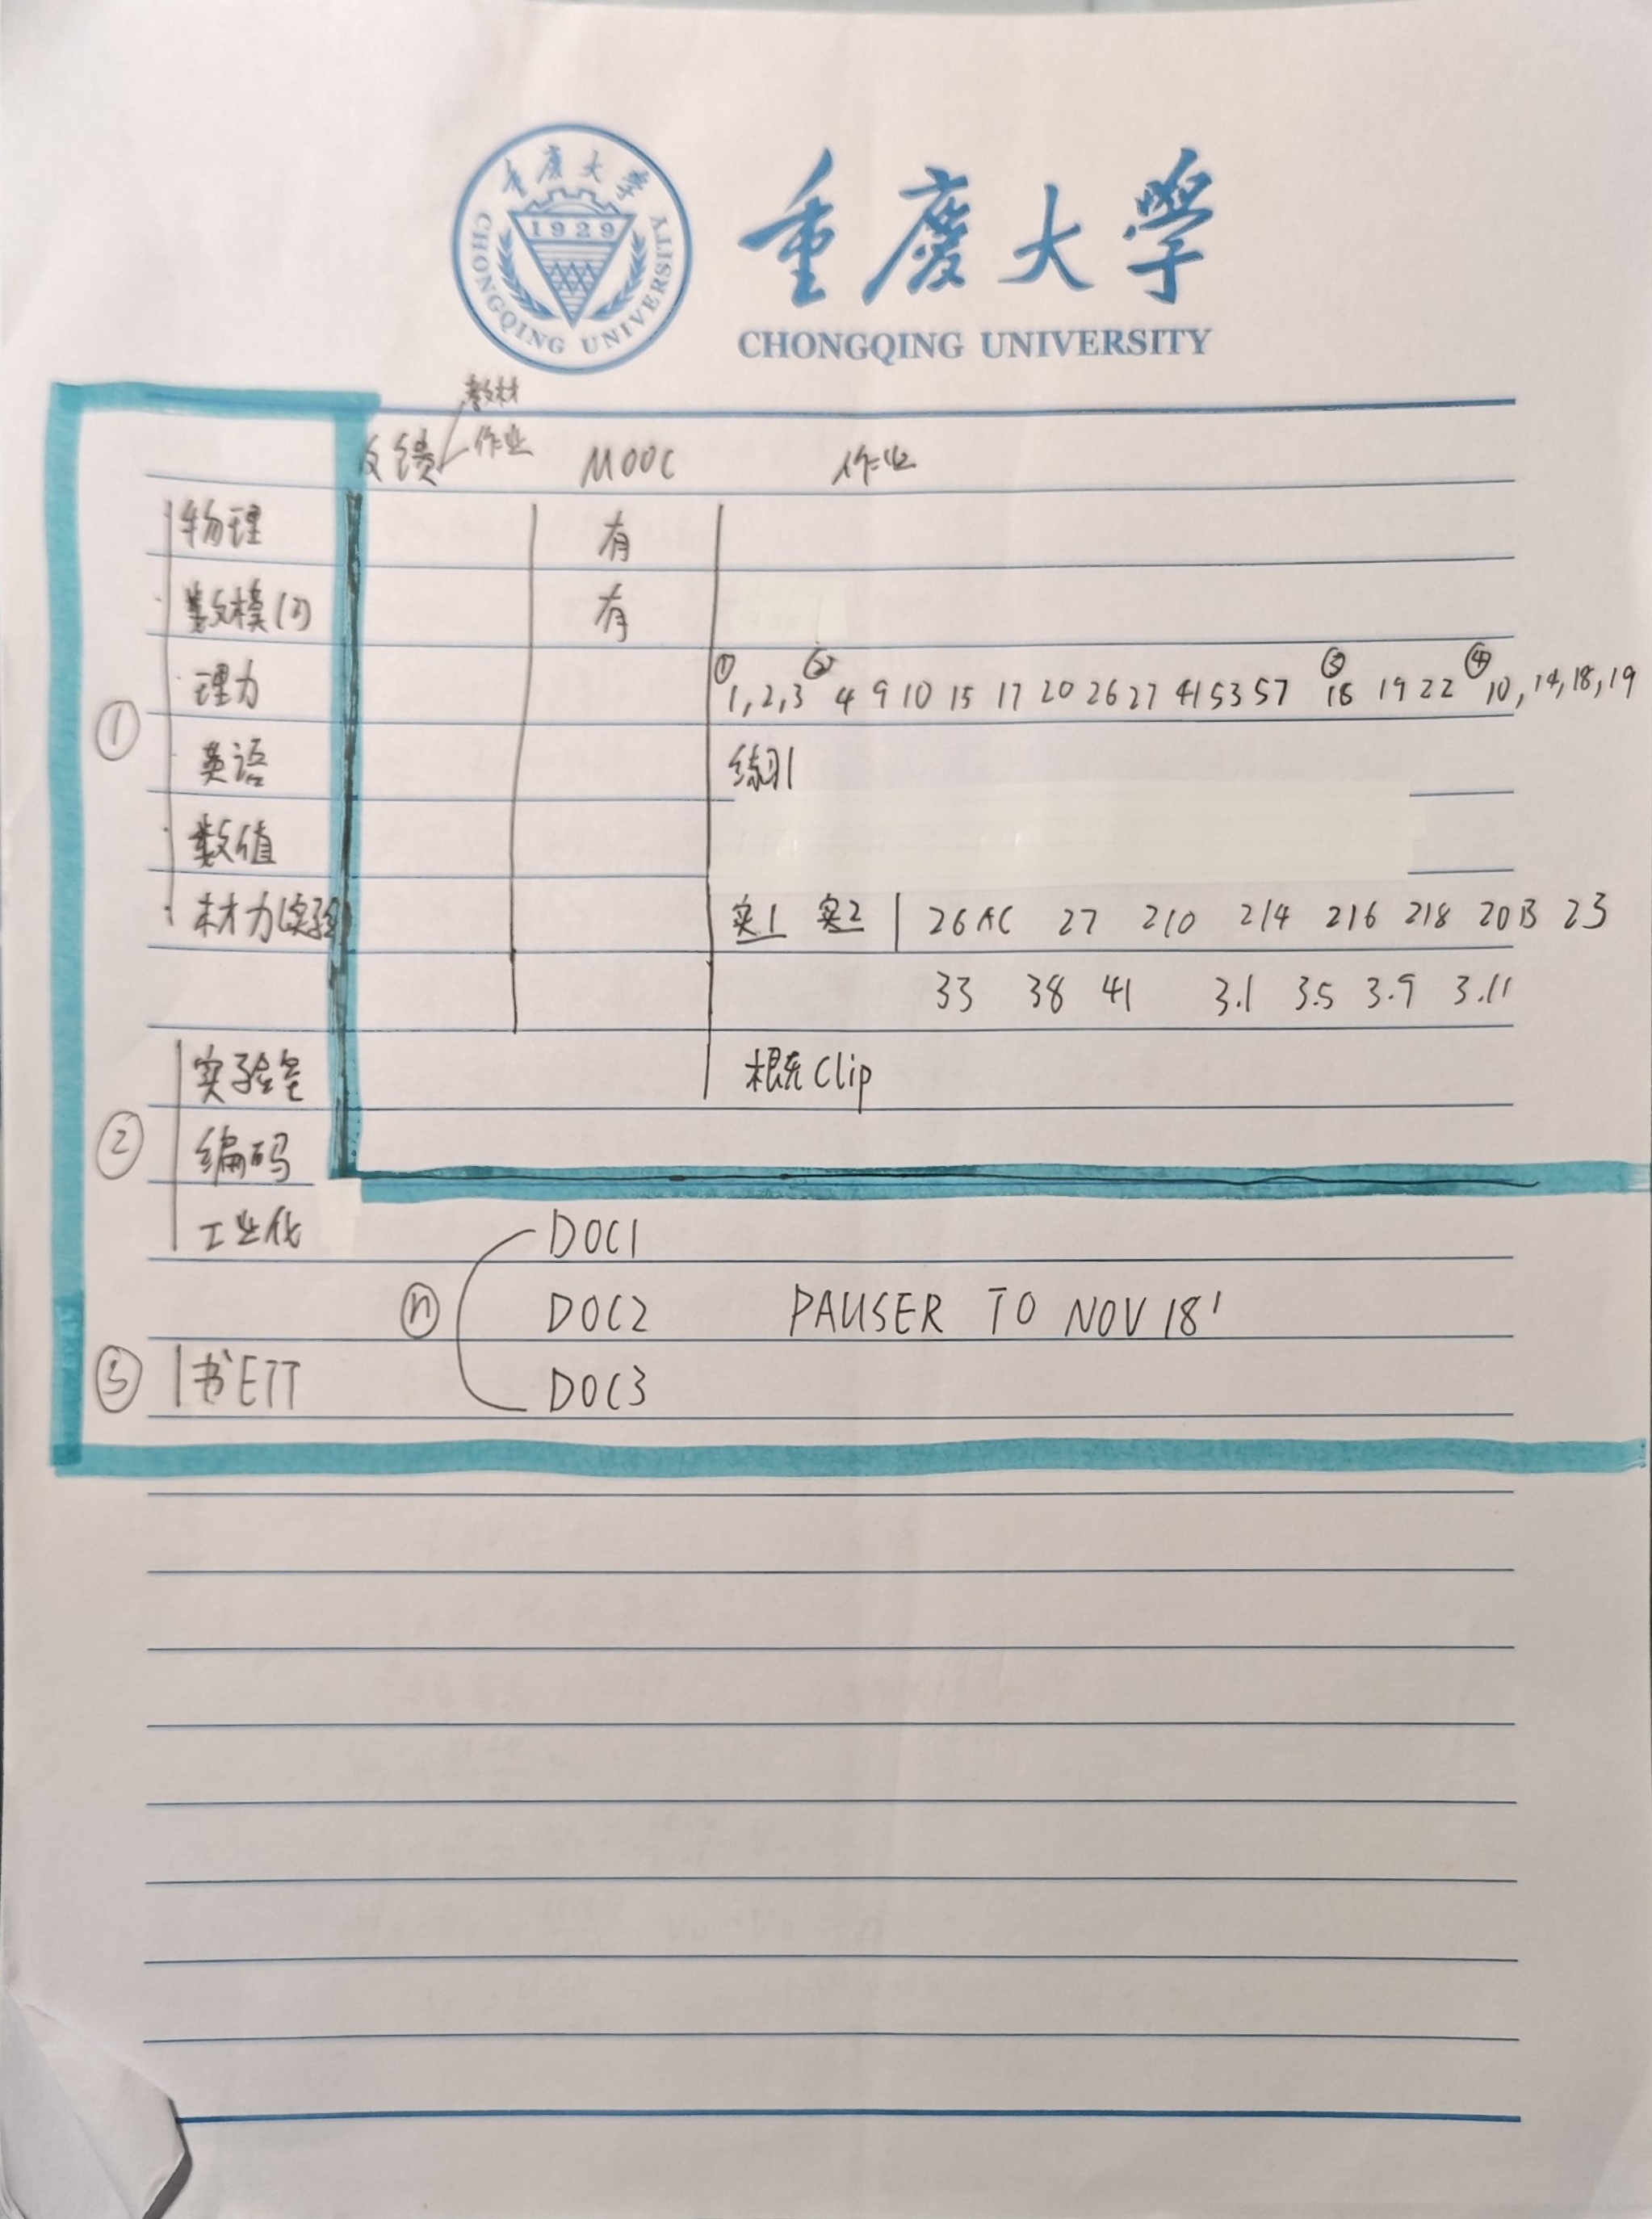 重慶大学
1929
CHONGQING UNIVERSITY
重慶大学
CHONGQING UNIVERSITY
教材
反馈 作业 MOOC 作业
物理 有
数模(2) 有
① ② ③ ④
理力 1,2,3 4 9 10 15 17 20 26 27 41 53 57 18 19 22 10,14,18,19
①
英语 练习1
数值
材力(实验 实1 实2 | 26AC 27 210 214 216 218 20B 23
33 38 41 3.1 3.5 3.9 3.11
实验室 Clip
② 编码
工业化 DOC1
ⓝ DOC2 PAUSER TO NOV 18'
③ 书ETT DOC3